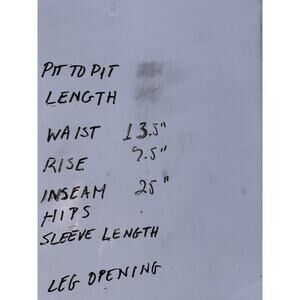 PIT TO PIT
LENGTH
WAIST 13.5"
RISE 9.5"
INSEAM 25"
HIPS
SLEEVE LENGTH
LEG OPENING